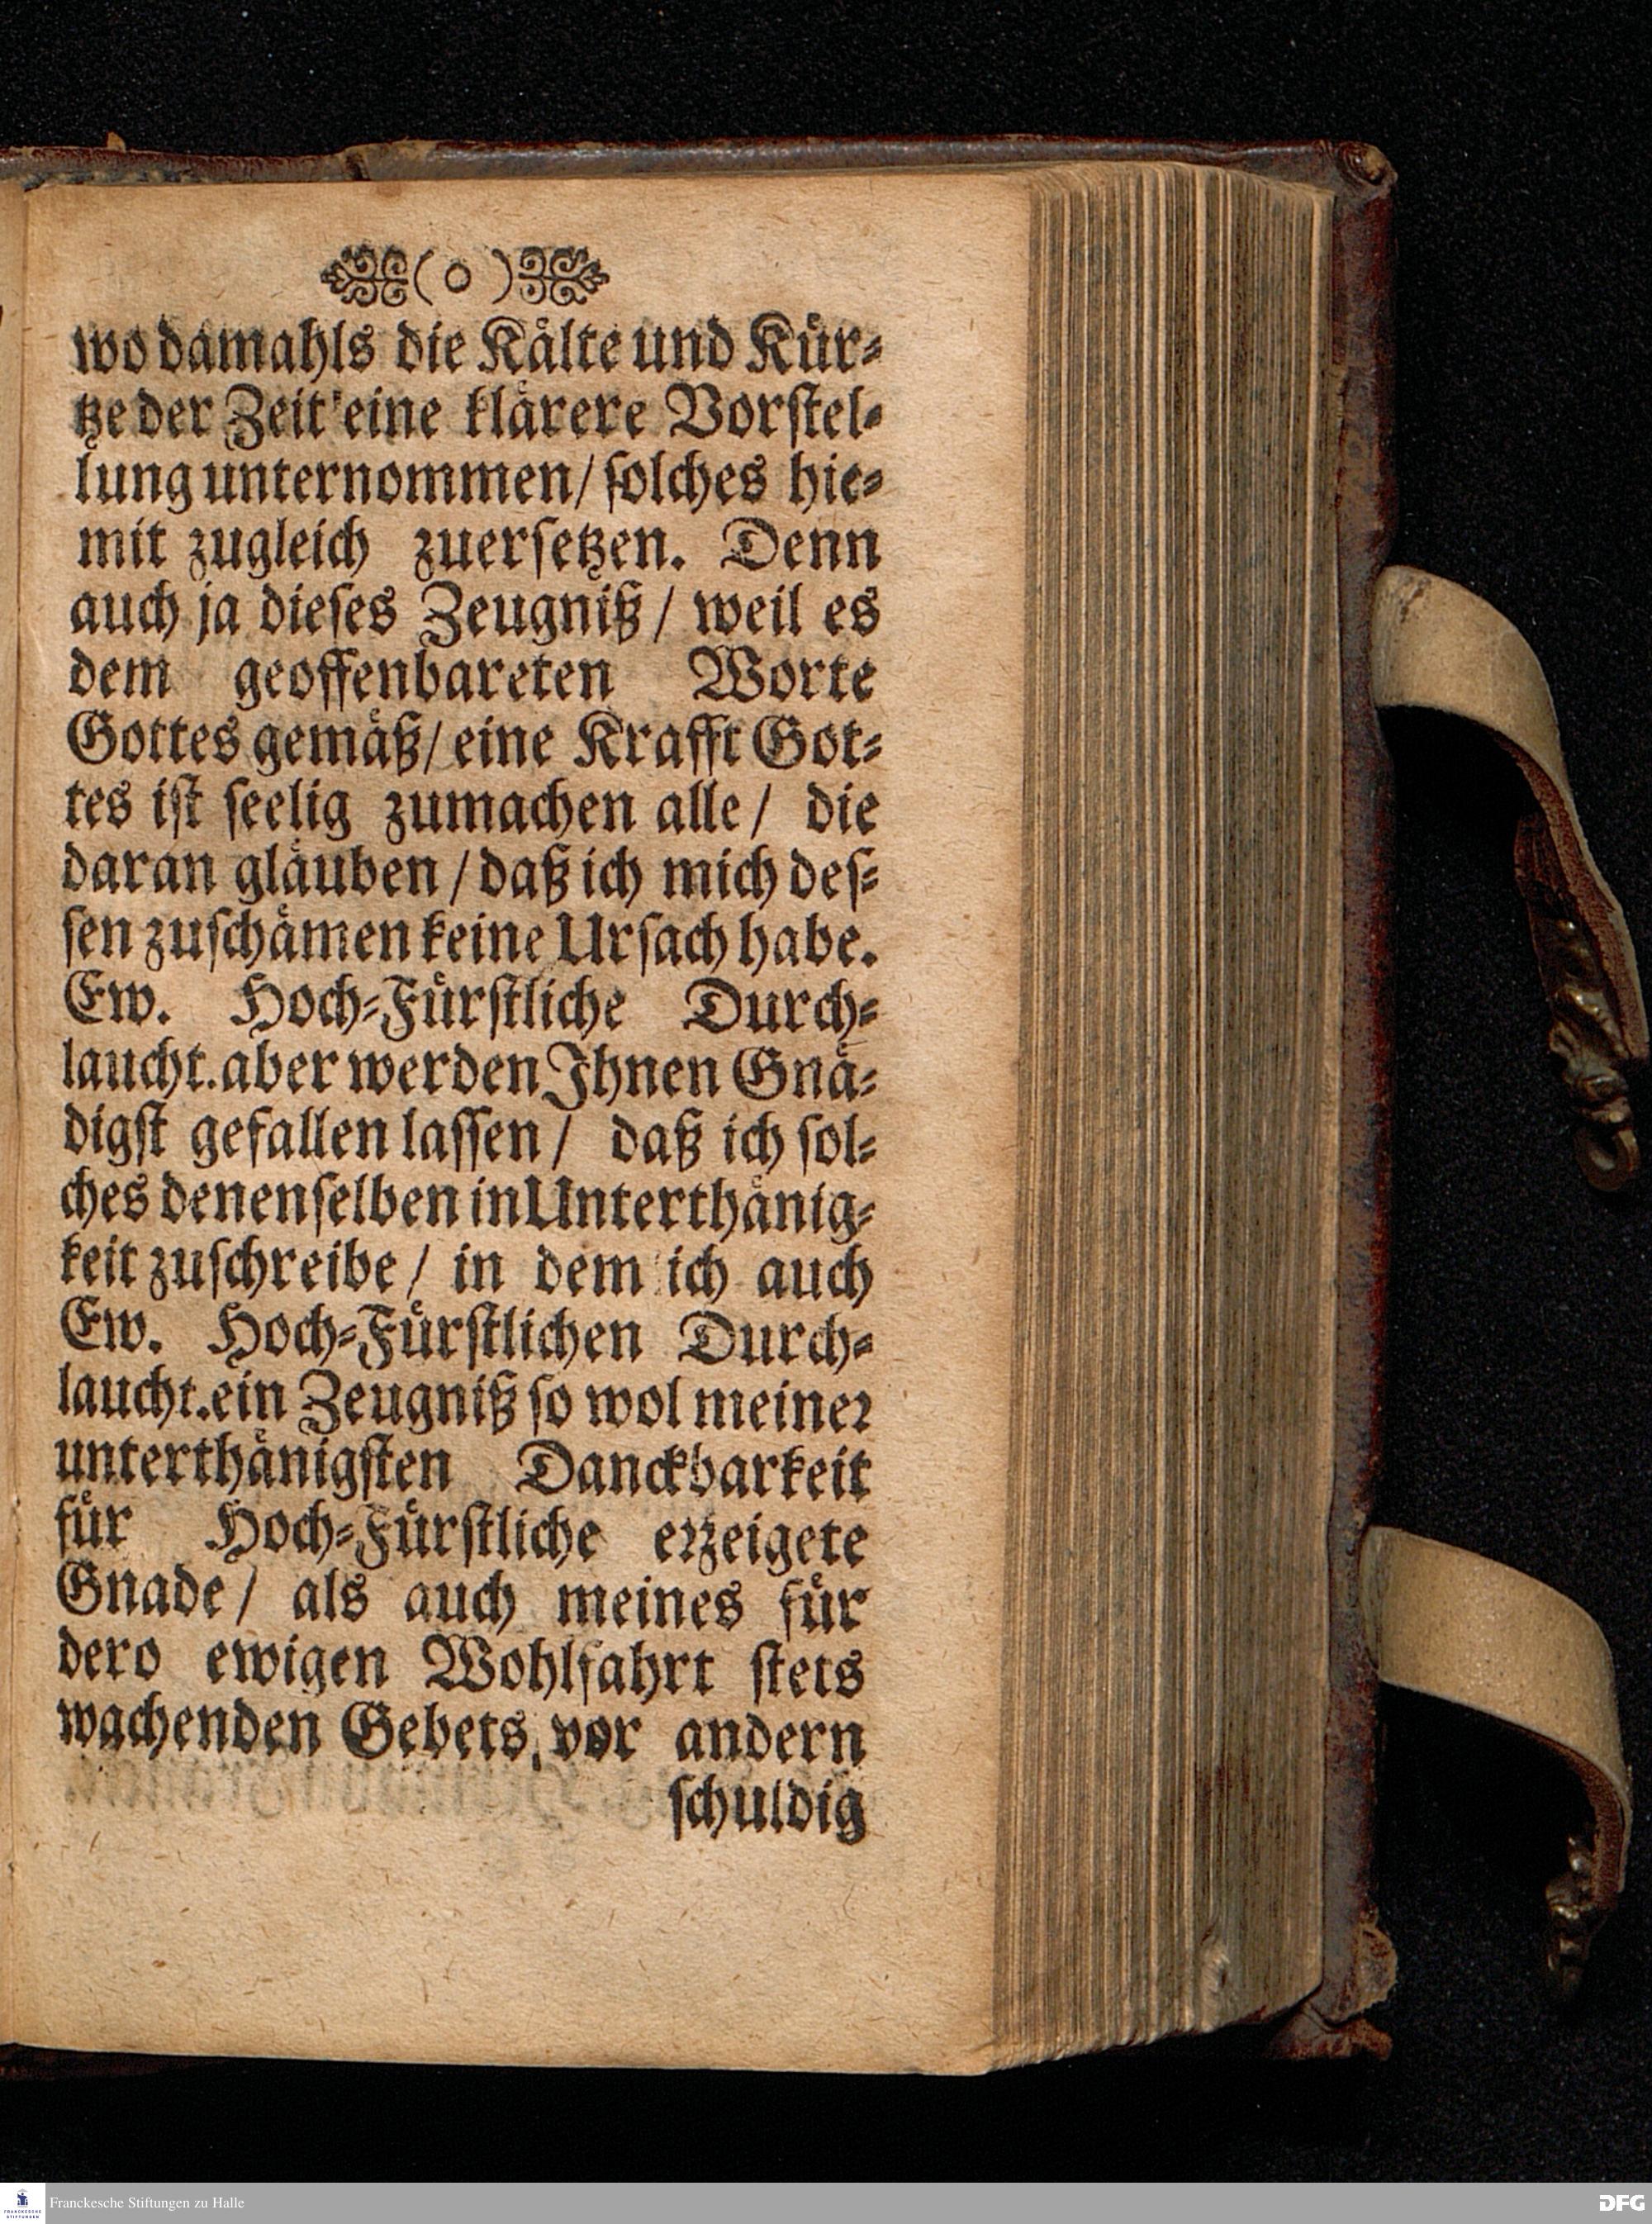 ( o )
wo damahls die Kålte und Kůr-
tze der Zeit eine klårere Vorſtel-
lung unternommen/ ſolches hie-
mit zugleich zuerſetzen. Denn
auch ja dieſes Zeugniß/ weil es
dem geoffenbareten Worte
Gottes gemåß/ eine Krafft Got-
tes iſt ſeelig zumachen alle/ die
daran glåuben/ daß ich mich deſ-
ſen zuſchåmen keine Urſach habe.
Ew. Hoch-Fůrſtliche Durch-
laucht. aber werden Ihnen Gnå-
digſt gefallen laſſen/ daß ich ſol-
ches denenſelben in Unterthånig-
keit zuſchreibe/ in dem ich auch
Ew. Hoch-Fůrſtlichen Durch-
laucht. ein Zeugniß ſo wol meineꝛ
unterthånigſten Danckbarkeit
fůr Hoch-Fůrſtliche eꝛzeigete
Gnade/ als auch meines fůr
dero ewigen Wohlfahrt ſtets
wachenden Gebets, vor andern
ſchuldig
Franckesche Stiftungen zu Halle
DFG